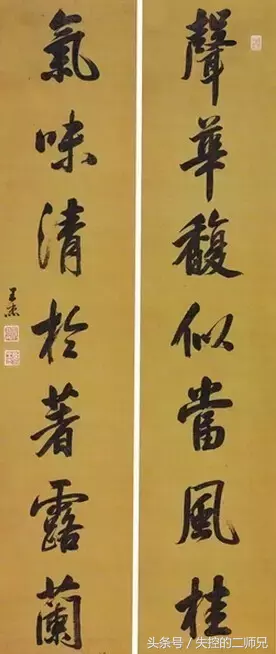 聲華馥似當風桂
氣味清於著露蘭
王杰
头条号 / 失控的二师兄